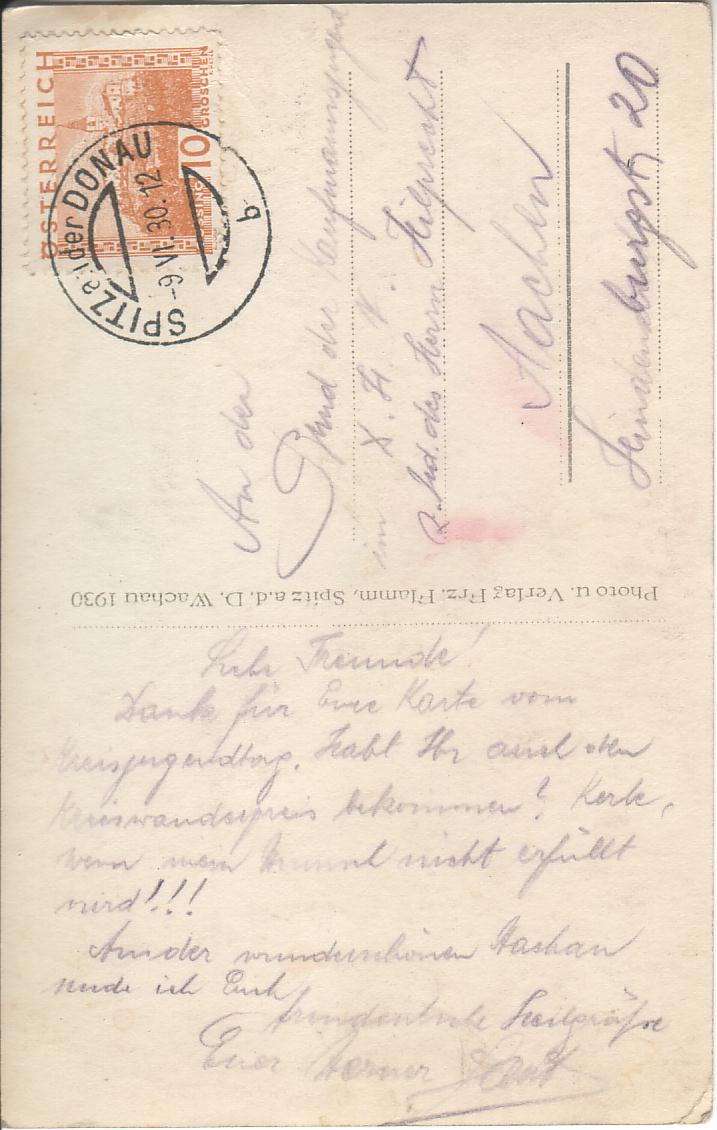 ÖSTERREICH
10
GROSCHEN
SPITZ a/der DONAU
-9.VI.30.12
b
An den
der Kaufmannsjugend
im D. H. V.
z. Hd. des Herrn Hilprecht
Aachen
Hindenburgstr 20
Photo u. Verlag Frz. Flamm, Spitz a.d. D. Wachau 1930
Liebe Freunde!
Dank für Eure Karte vom
Kreisjugendtag. Habt Ihr auch den
Kreiswanderpreis bekommen? Kerle,
wenn mein Wunsch nicht erfüllt
wird!!!
Aus der wunderschönen Wachau
sende ich Euch
Heilgrüße
Euer Werner